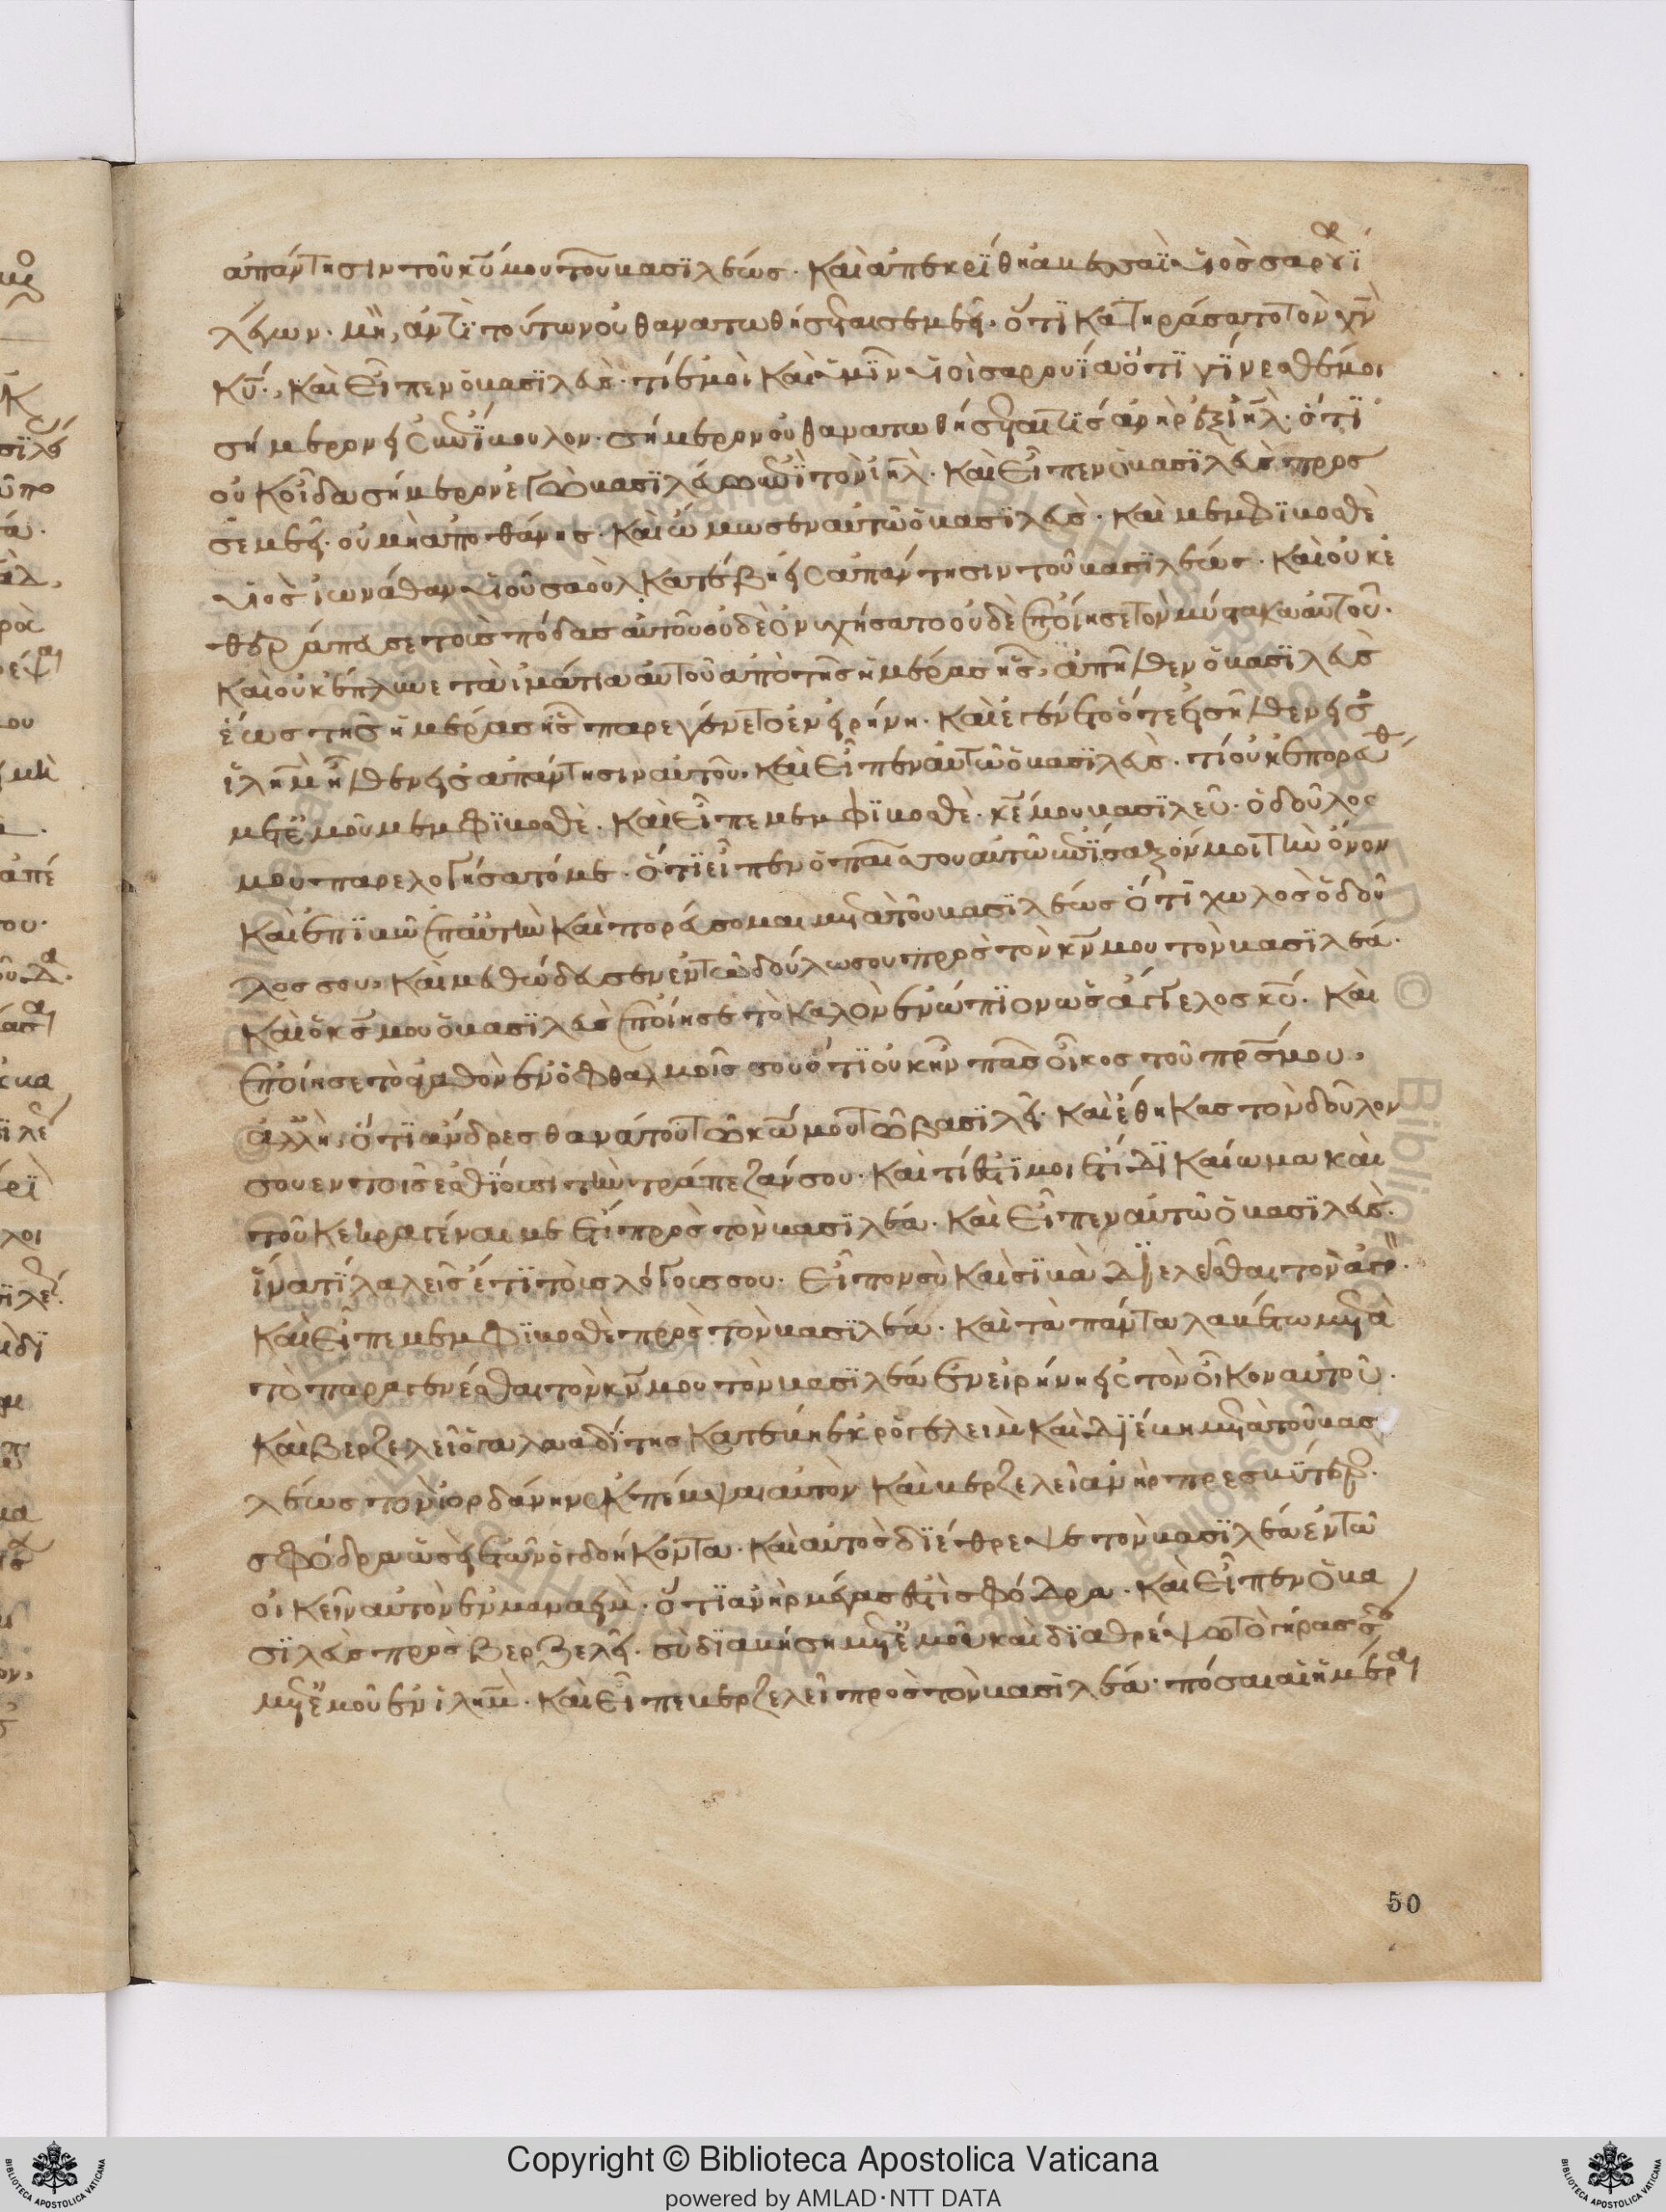 ἀπάντησιν τοῦ κυ μου τοῦ βασϊλέως· καὶ ἀπεκρΐθη ἀβεσσαῒ υἱὸς σαρουΐα
λέγων· μὴ ἀντὶ τούτων οὐ θανατωθήσεται σεμεεί· ὅτϊ κατηράσατο τὸν χν
κυ· καὶ εἶπεν ὁ βασϊλεὺς· τί ἐμοὶ καὶ ὑμῖν υἱοὶ σαρουΐα ὅτϊ γΐνεσθέ μοι
σήμερον εἰς ἐπΐβουλον· σήμερον οὐ θανατωθήσεταί τϊς ἀνὴρ ἐξ ιηλ· ὅτϊ
οὐκ οἶδα σήμερον εἰ βασϊλεύω ἐπῒ τὸν ιηλ· καὶ εἶπεν ὁ βασϊλεὺς πρὸς
σεμεεί· οὐ μὴ ἀποθάνης· καὶ ὤμοσεν αὐτῶ ὁ βασϊλεὺς· καὶ μεμφϊβοσθὲ
υἱὸς ἰωνάθαν υἱοῦ σαοὺλ κατέβη εἰς ἀπάντησιν τοῦ βασϊλέως· καὶ οὐκ ἐ
θεράπευσε τοὺς πόδας αὐτοῦ οὐδὲ ὀνυχήσατο οὐδὲ ἐποίησε τὸν μύστακα αὐτοῦ·
καὶ οὐκ ἔπλυνε τὰ ἱμάτια αὐτοῦ ἀπὸ τῆς ἡμέρας ἧς ἀπῆλθεν ὁ βασϊλεὺς
ἕως τῆς ἡμέρας ἧς παρεγένετο ἐν εἰρήνη· καὶ ἐγένετο ὅτε εἰσῆλθεν εἰς
ϊλημ ἦλθεν εἰς ἀπάντησιν αὐτοῦ· καὶ εἶπεν αὐτῶ ὁ βασϊλεὺς· τί οὐκ ἐπορεύθης
μετ ἐμοῦ μεμφϊβοσθὲ· καὶ εἶπε μεμφϊβοσθὲ· κε μου βασϊλεῦ· ὁ δοῦλος
μου παρελογήσατό με· ὅτϊ εἶπεν ὁ παῖς σου αὐτῶ ἐπΐσαξόν μοι τὴν ὄνον
καὶ ἐπϊβῶ ἐπ αὐτὴν καὶ πορεύσομαι μετὰ τοῦ βασϊλέως ὅτϊ χωλὸς ὁ δοῦ
λός σου· καὶ μεθώδευσεν ἐν τῶ δούλω σου πρὸς τὸν κν μου τὸν βασϊλέα·
καὶ ὁ κς μου ὁ βασϊλεὺς ἐποίησε τὸ καλὸν ἐνώπϊον ὡς ἄγγελος κυ· καὶ
ἐποίησε τὸ ἀγαθὸν ἐν ὀφθαλμοῖς σου ὅτϊ οὐκ ἦν πᾶς οἶκος τοῦ πρς μου·
ἀλλ ἢ ὅτϊ ἄνδρες θανάτου τῶ κω μου τῶ βασϊλεῖ· καὶ ἔθηκας τὸν δοῦλόν
σου ἐν τοῖς ἐσθΐουσι τὴν τράπεζάν σου· καὶ τί ἐστΐ μοι ἔτϊ δϊκαίωμα καὶ
τοῦ κεκραγέναι με ἔτϊ πρὸς τὸν βασϊλέα· καὶ εἶπεν αὐτῶ ὁ βασϊλεὺς·
ἵνατϊ λαλεῖς ἔτϊ τοὺς λόγους σου· εἶπον σὺ καὶ σϊβὰ δϊελεῖσθαι τὸν ἀγρόν·
καὶ εἶπε μεμφϊβοσθὲ πρὸς τὸν βασϊλέα· καὶ τὰ πάντα λαβέτω μετὰ
τὸ παραγενέσθαι τὸν κν μου τὸν βασϊλέα ἐν εἰρήνη εἰς τὸν οἶκον αὐτοῦ·
καὶ βερζελεῖ ὁ γαλααδΐτης κατέβη ἐκ ρογελεὶμ καὶ δϊέβη μετὰ τοῦ βασ
λέως τὸν ἰορδάνην ἐκπέμψαι αὐτὸν καὶ βερζελεῖ ἀνὴρ πρεσβΰτερος
σφόδρα ὡσεὶ ἐτῶν ὀγδοήκοντα· καὶ αὐτὸς δϊέθρεψε τὸν βασϊλέα ἐν τῶ
οἰκεῖν αὐτὸν ἐν μαναεὶμ· ὅτϊ ἀνὴρ μέγας ἐστὶ σφόδρα· καὶ εἶπεν ὁ βα
σϊλεὺς πρὸς βερζελεῖ· σὺ δϊαβήση μετ ἐμοῦ καὶ δϊαθρέψω τὸ γῆρας σου
μετ ἐμοῦ ἐν ϊλημ· καὶ εἶπε βερζελεῖ πρὸς τὸν βασϊλέα· πόσαι αἱ ἡμέραι
50
Copyright © Biblioteca Apostolica Vaticana
powered by AMLAD·NTT DATA